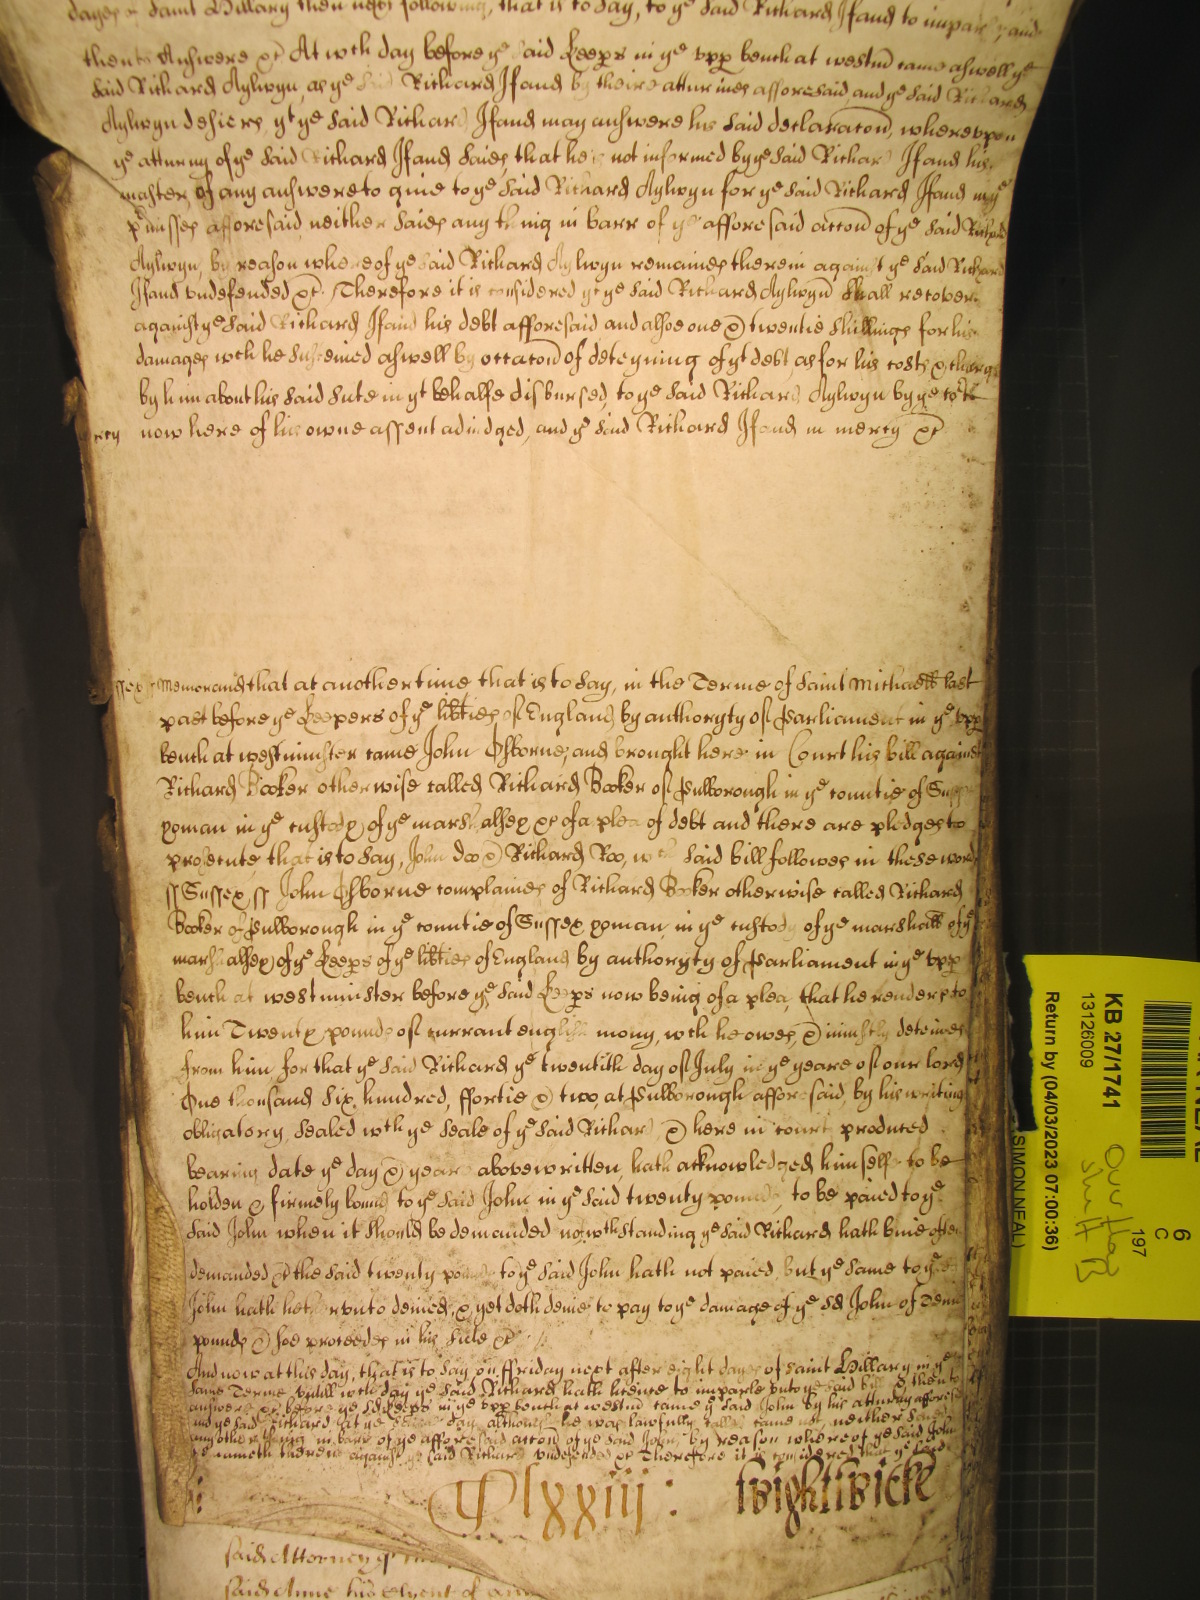 dayes of Saint Hillary then next following, that is to say, to ye said Richard Ifand to imparle and
then to Answere &c At wch day before ye said Keepers in ye vpp bench at westm came aswell ye
said Richard Aylwyn, as ye said Richard Ifand by theire atturnies afforesaid, and ye said Richard
Aylwyn desiers yt ye said Richard Ifand may answere his said declaracon, wherevpon
ye atturny of ye said Richard Ifand saies that he is not informed by ye said Richard Ifand his
master of any answere to give to ye said Richard Aylwyn for ye said Richard Ifand in ye
pmisses afforesaid neither saies any thinig in barr of ye afforesaid accon of ye said Richard
Aylwyn, by reason whereof ye said Richard Aylwyn remaines therein against ye said Richard
Ifand vndefended &c. Therefore it is considered yt ye said Richard Aylwyn shall recover
against ye said Richard Ifand his debt afforesaid and alsoe one & twentie shillings for his
damages wch he susteined aswell by occacon of deteyning of yt debt, as for his costs & charges
by him about his said sute in yt behalfe disbursed, to ye said Richard Aylwyn by ye Cort
now here of his owne assent adiudged, and ye said Richard Ifand in mercy &c
mercy
ssex ss Memorand that at another time, that is to say, in the Terme of Saint Michaell last
past before ye Keepers of ye libties of England by authoryty of Parliament in ye vpp
bench at westminster came John Osborne, and brought here in Court his bill against
Richard Booker otherwise called Richard Booker of Pulborough in ye countie of Sussex
yoman in ye custody of ye marshalsey &c of a plea of debt and there are pledges to
prosecute that is to say, John doo & Richard Roo, wch said bill followes in these words
ss Sussex ss John Osborne complaines of Richard Booker otherwise called Richard
Booker of Pulborough in ye countie of Sussex yoman, in ye custody of ye marshall of ye
marshalsey of ye Keeps of ye libties of England by authoryty of Parliament in ye vpp
bench at westminster before ye said Keeps now being of a plea, that he render to
him Twenty pounds of currant english mony, wch he owes, & iniustly deteines
from him for that ye said Richard ye twentith day of July in ye yeare of our lord
One thousand six hundred, ffortie & two, at Pulborough afforesaid, by his writing
obligatory, sealed wth ye seale of ye said Richard & here in court produced
bearing date ye day & yeare abovewritten, hath acknowledged himselfe to be
holden & firmely bound to ye said John in ye said twenty pounds, to be paied to ye
said John when it should be demanded notwthstanding ye said Richard hath bine often
demanded &c the said twenty pounds to ye said John hath not paied, but ye same to ye
John hath hetherunto denied, & yet doth denie to pay to ye damage of ye sd John of Tenn
pounds & soe proceedes in his sute &c
And now at this day, that is to say, on ffriday next after eight dayes of saint Hillary in ye
same Terme, vntill wch day ye said Richard hath licence to imparle vnto ye said bill & then to
answere &c before ye sd Keeps in ye vpp bench at westm came ye said John by his atturny afforesaid
and ye said Richard at ye same day, although he was lawfully called came not, neither saies
any other thing in barr of ye afforesaid accon of ye said John, by reason whereof ye said John
remaineth therein against ye said Richard vndefended &c Therefore it is considered that ye said
lxxiij : Wightwicke
said Attorney
said Anne his
KB 27/1741
13126009
Return by (04/03/2023 07:00:36)
(SIMON NEAL)
6
C
197